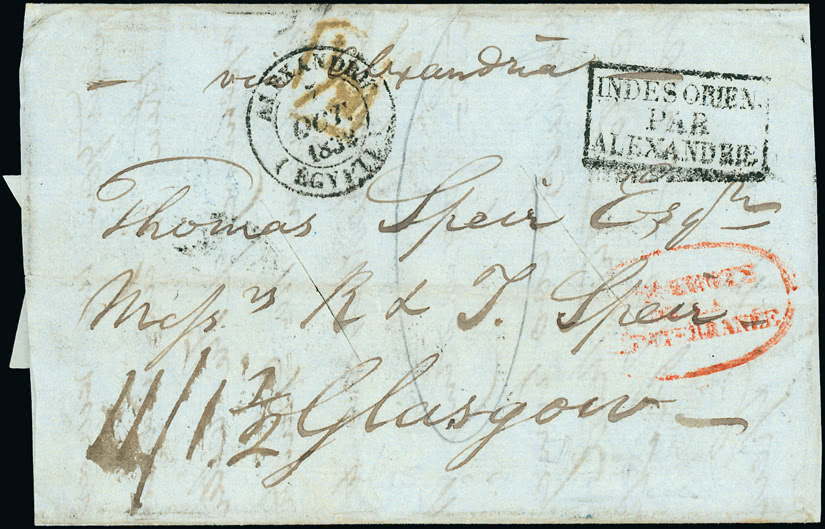 via Alexandria
ALEXANDRIE
7
OCT.
183
(EGYPTE)
INDES ORIEN.
PAR
ALEXANDRIE
Thomas Speir Esqre
Messrs R & T. Speir
4/1½ Glasgow